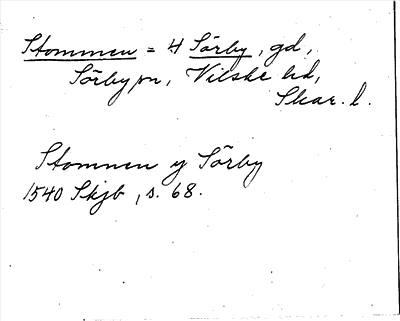 Stommen = 4 Sörby, gd,
Sörby sn, Vilske hd,
Skar. l.
Stommen y Sörby
1540 Skjb, s. 68.